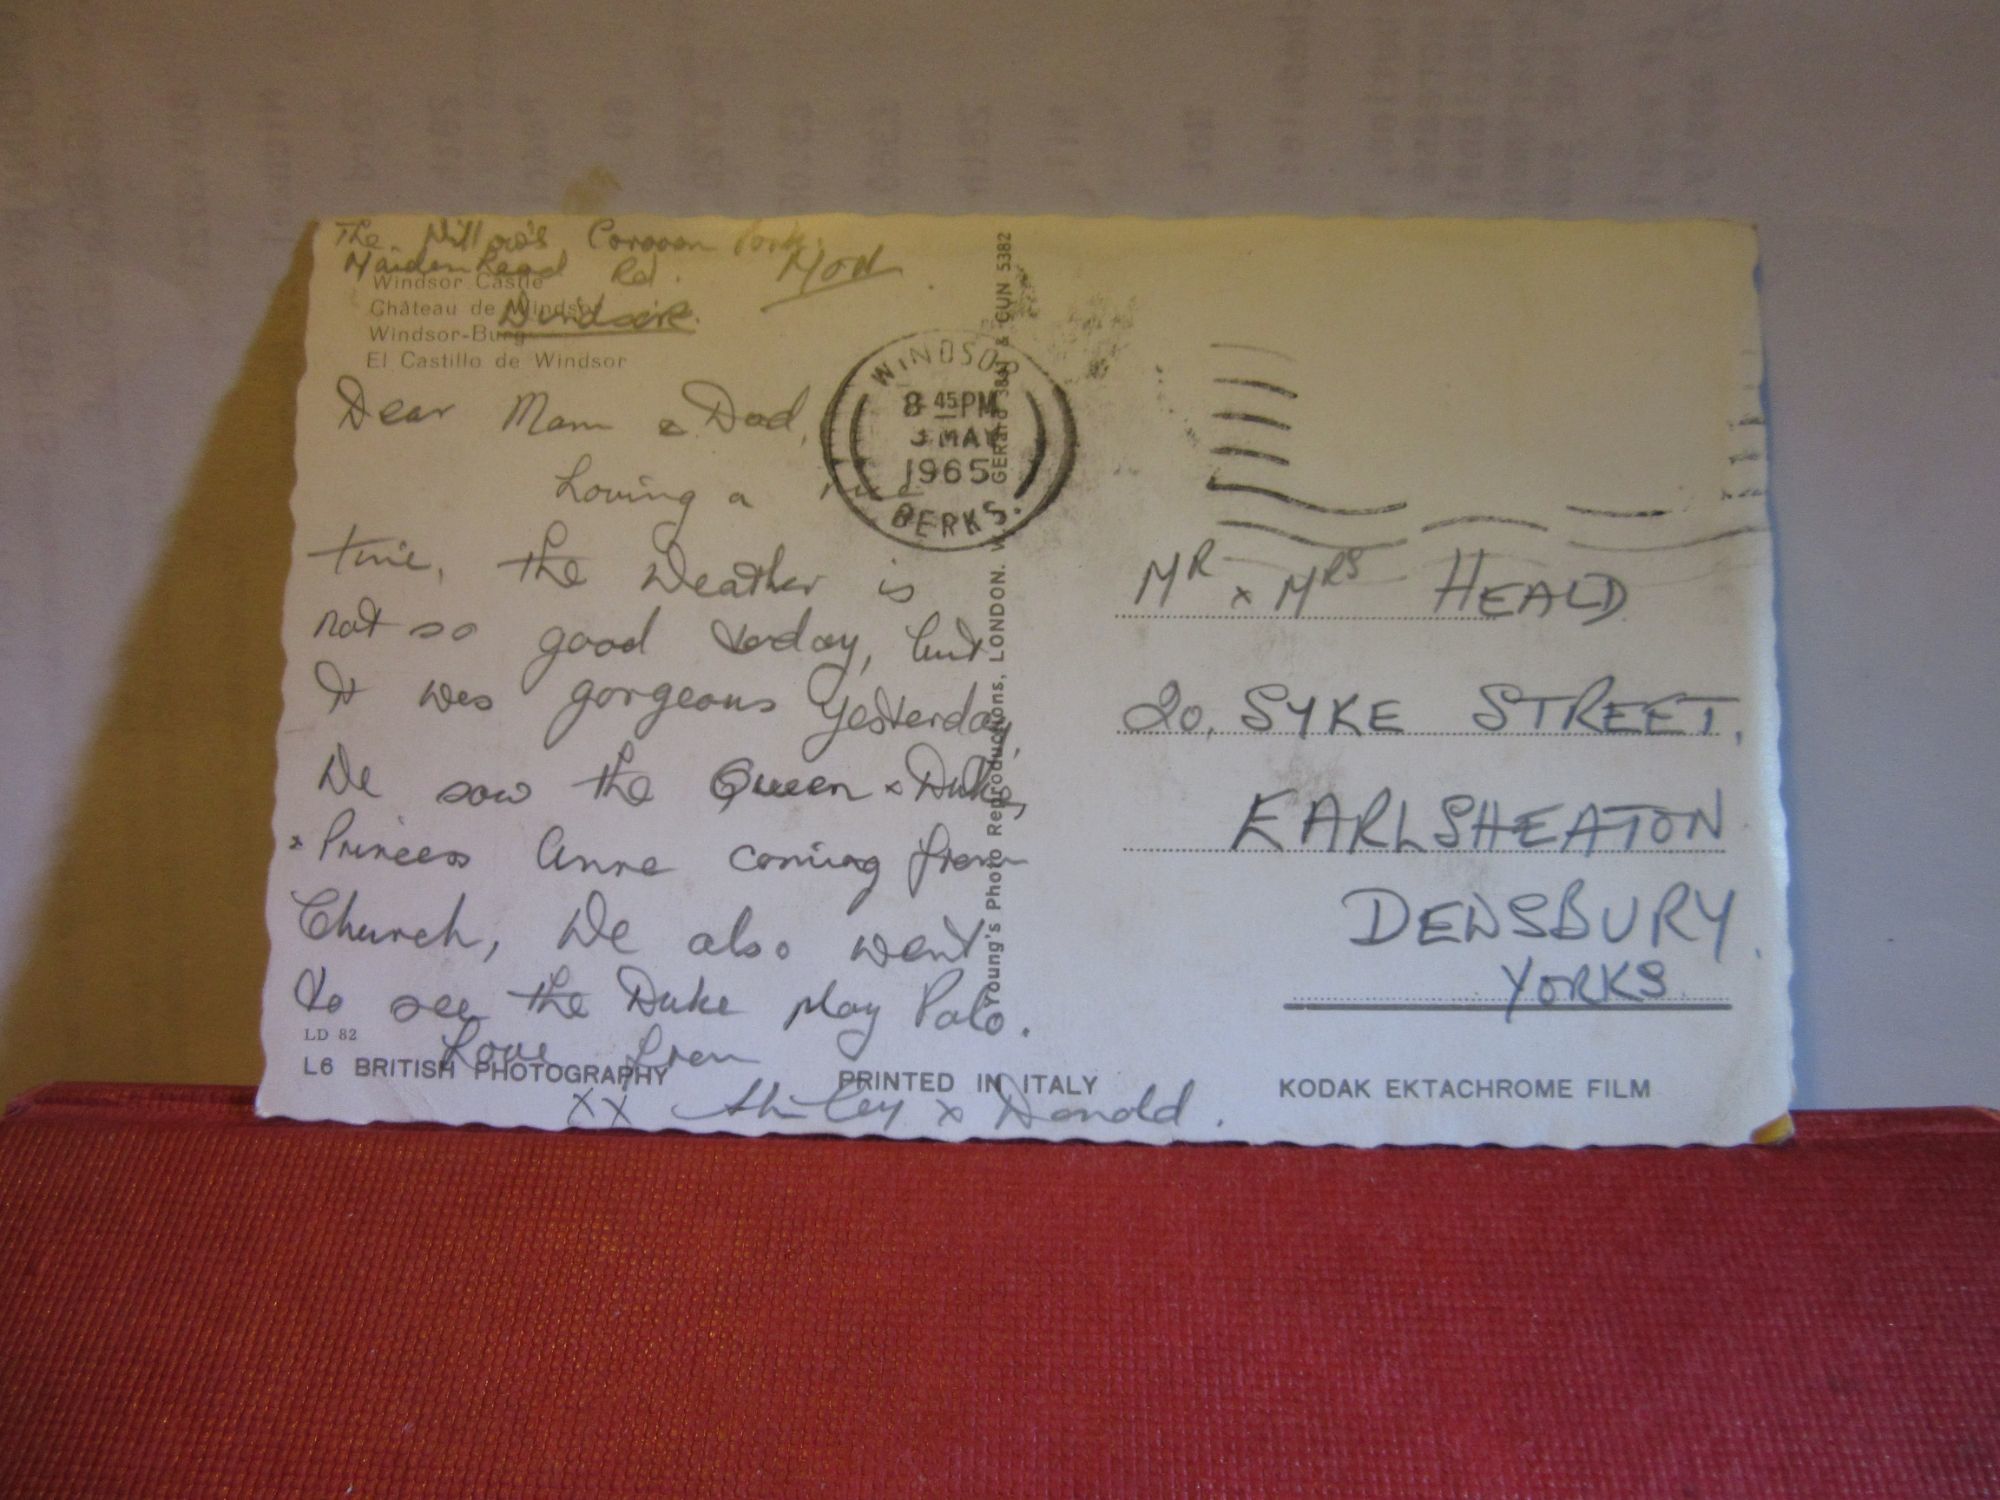 The Willow's Caravan Park.
Maidenhead Rd. Mon
Windsor Castle
Château de Windsor
Windsor.
Windsor-Burg
El Castillo de Windsor
Dear Mam & Dad,
Having a nice
time, the Weather is
not so good today, but
it was gorgeous yesterday,
We saw the Queen & Duke,
& Princess Anne coming from
Church, We also went
to see the Duke play Polo.
Love from
xx Shirley & Donald.
LD 82
L6 BRITISH PHOTOGRAPHY
PRINTED IN ITALY
KODAK EKTACHROME FILM
Young's Photo Reproductions, LONDON. W. GERrard 3881 & GUN 5382
WINDSOR
8 45 PM
3 MAY
1965
BERKS.
MR & MRS HEALD
20, SYKE STREET,
EARLSHEATON
DEWSBURY.
YORKS.